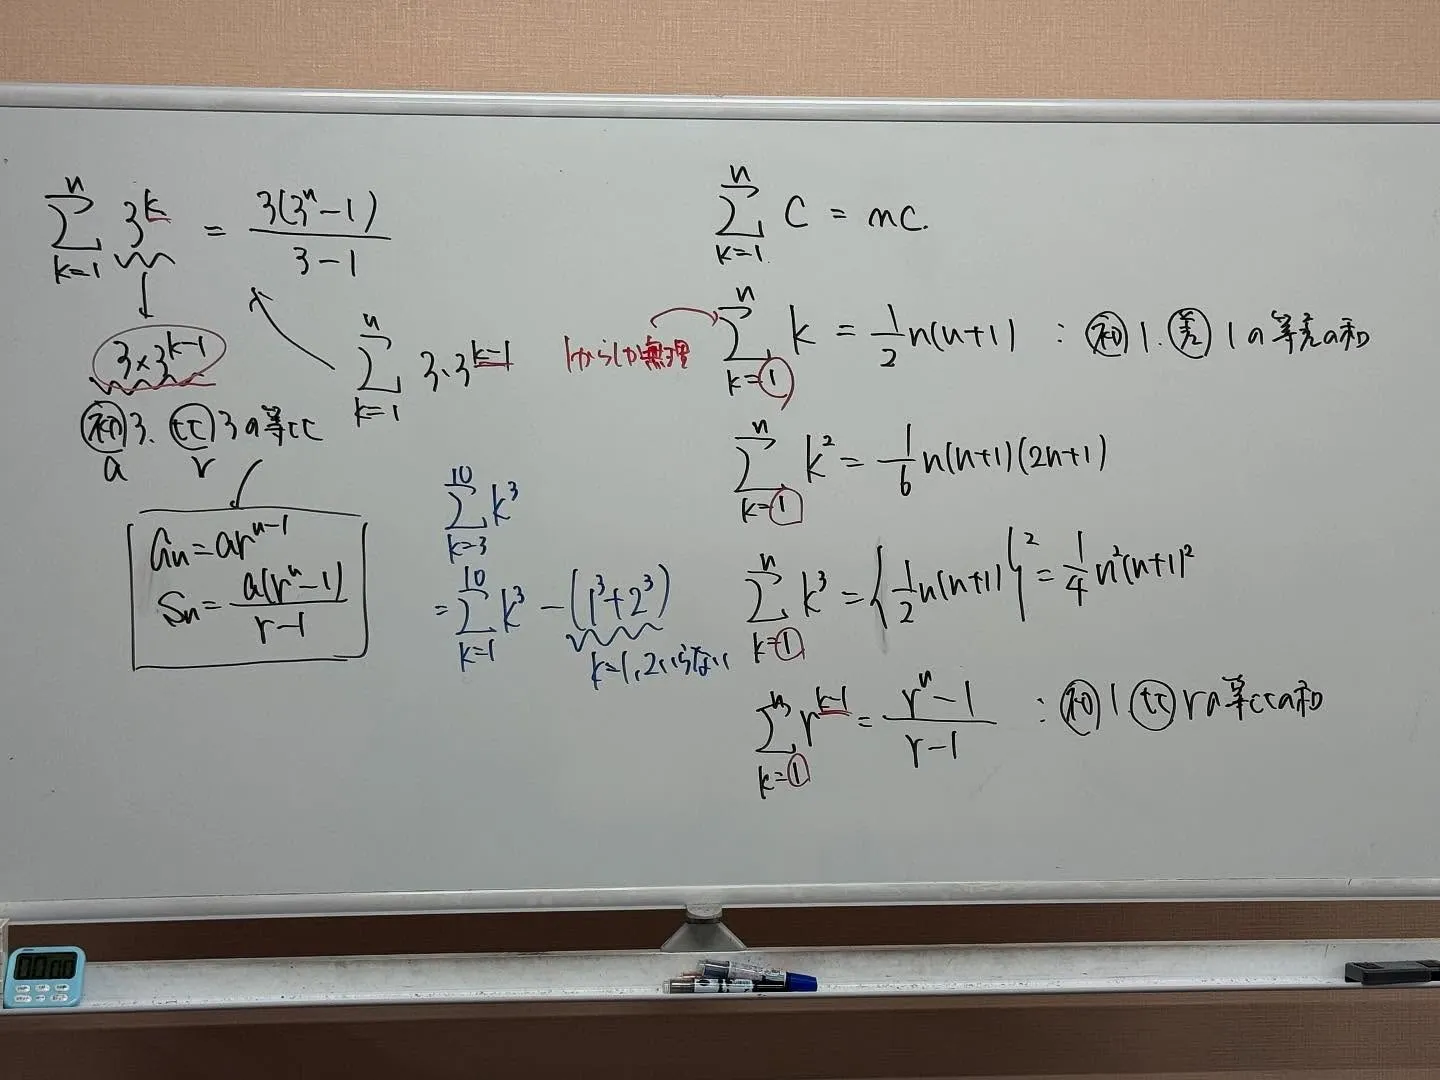 \sum_{k=1}^{n} 3^k = \frac{3(3^n-1)}{3-1}
3×3^{k-1}
\sum_{k=1}^{n} 3・3^{k-1}
初3. 比3の等比
a r
a_n=ar^{n-1}
S_n=\frac{a(r^n-1)}{r-1}
\sum_{k=3}^{10} k^3
=\sum_{k=1}^{10} k^3-(1^3+2^3)
k=1,2いらない
\sum_{k=1}^{n} C = nC.
1からしか無理
\sum_{k=1}^{n} k = \frac{1}{2}n(n+1) : 初1. 差1の等差の和
\sum_{k=1}^{n} k^2 = \frac{1}{6}n(n+1)(2n+1)
\sum_{k=1}^{n} k^3 = {\frac{1}{2}n(n+1)}^2 = \frac{1}{4}n^2(n+1)^2
\sum_{k=1}^{n} r^{k-1} = \frac{r^n-1}{r-1} : 初1. 比rの等比の和